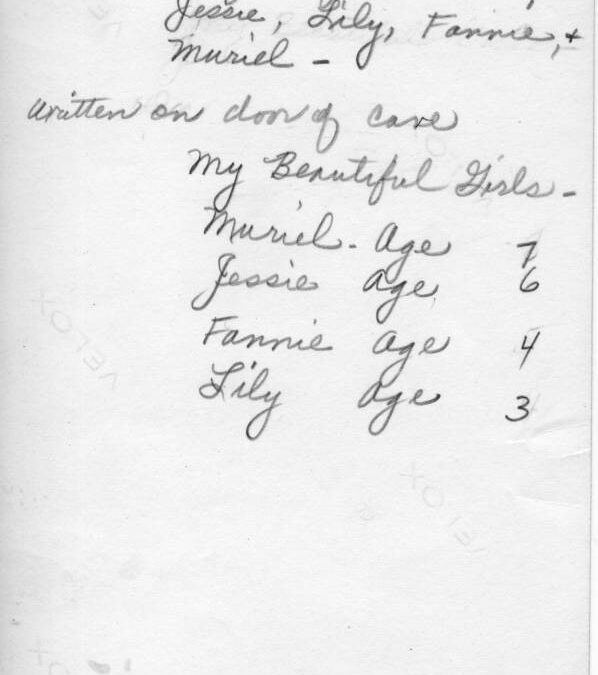 Jessie, Lily, Fannie, +
Muriel -
written on door of cave
My Beautiful Girls -
Muriel - Age 7
Jessie age 6
Fannie age 4
Lily age 3
VELOX
VELOX